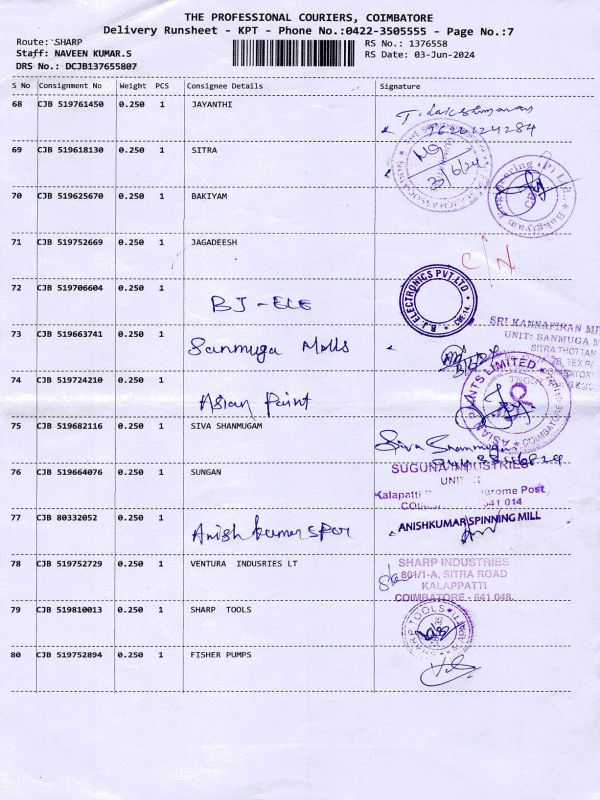 THE PROFESSIONAL COURIERS, COIMBATORE
Delivery Runsheet - KPT - Phone No.:0422-3505555 - Page No.:7
Route: SHARP
Staff: NAVEEN KUMAR.S
DRS No.: DCJB137655807
RS No.: 1376558
RS Date: 03-Jun-2024
S No Consignment No Weight PCS Consignee Details Signature
68 CJB 519761450 0.250 1 JAYANTHI
9626124284
69 CJB 519618130 0.250 1 SITRA
70 CJB 519625670 0.250 1 BAKIYAM
71 CJB 519752669 0.250 1 JAGADEESH
C/N
72 CJB 519706604 0.250 1 BJ-ELE
ELECTRONICS PVT LTD
73 CJB 519663741 0.250 1 Sanmuga Mills
SRI KANNAPIRAN MI
UNIT: SANMUGA M
74 CJB 519724210 0.250 1 Asian Paint
ASIAN PAINTS LIMITED
COIMBATORE
75 CJB 519682116 0.250 1 SIVA SHANMUGAM
Siva Shanmugam
76 CJB 519664076 0.250 1 SUNGAN
SUGUNA INDUSTRIES
Kalapatti
rome Post
641 014
77 CJB 80332052 0.250 1 Anishkumarspor
ANISHKUMAR SPINNING MILL
78 CJB 519752729 0.250 1 VENTURA INDUSRIES LT
SHARP INDUSTRIES
801/1-A, SITRA ROAD
KALAPPATTI
COIMBATORE - 641 048.
79 CJB 519810013 0.250 1 SHARP TOOLS
SHARP TOOLS
80 CJB 519752894 0.250 1 FISHER PUMPS